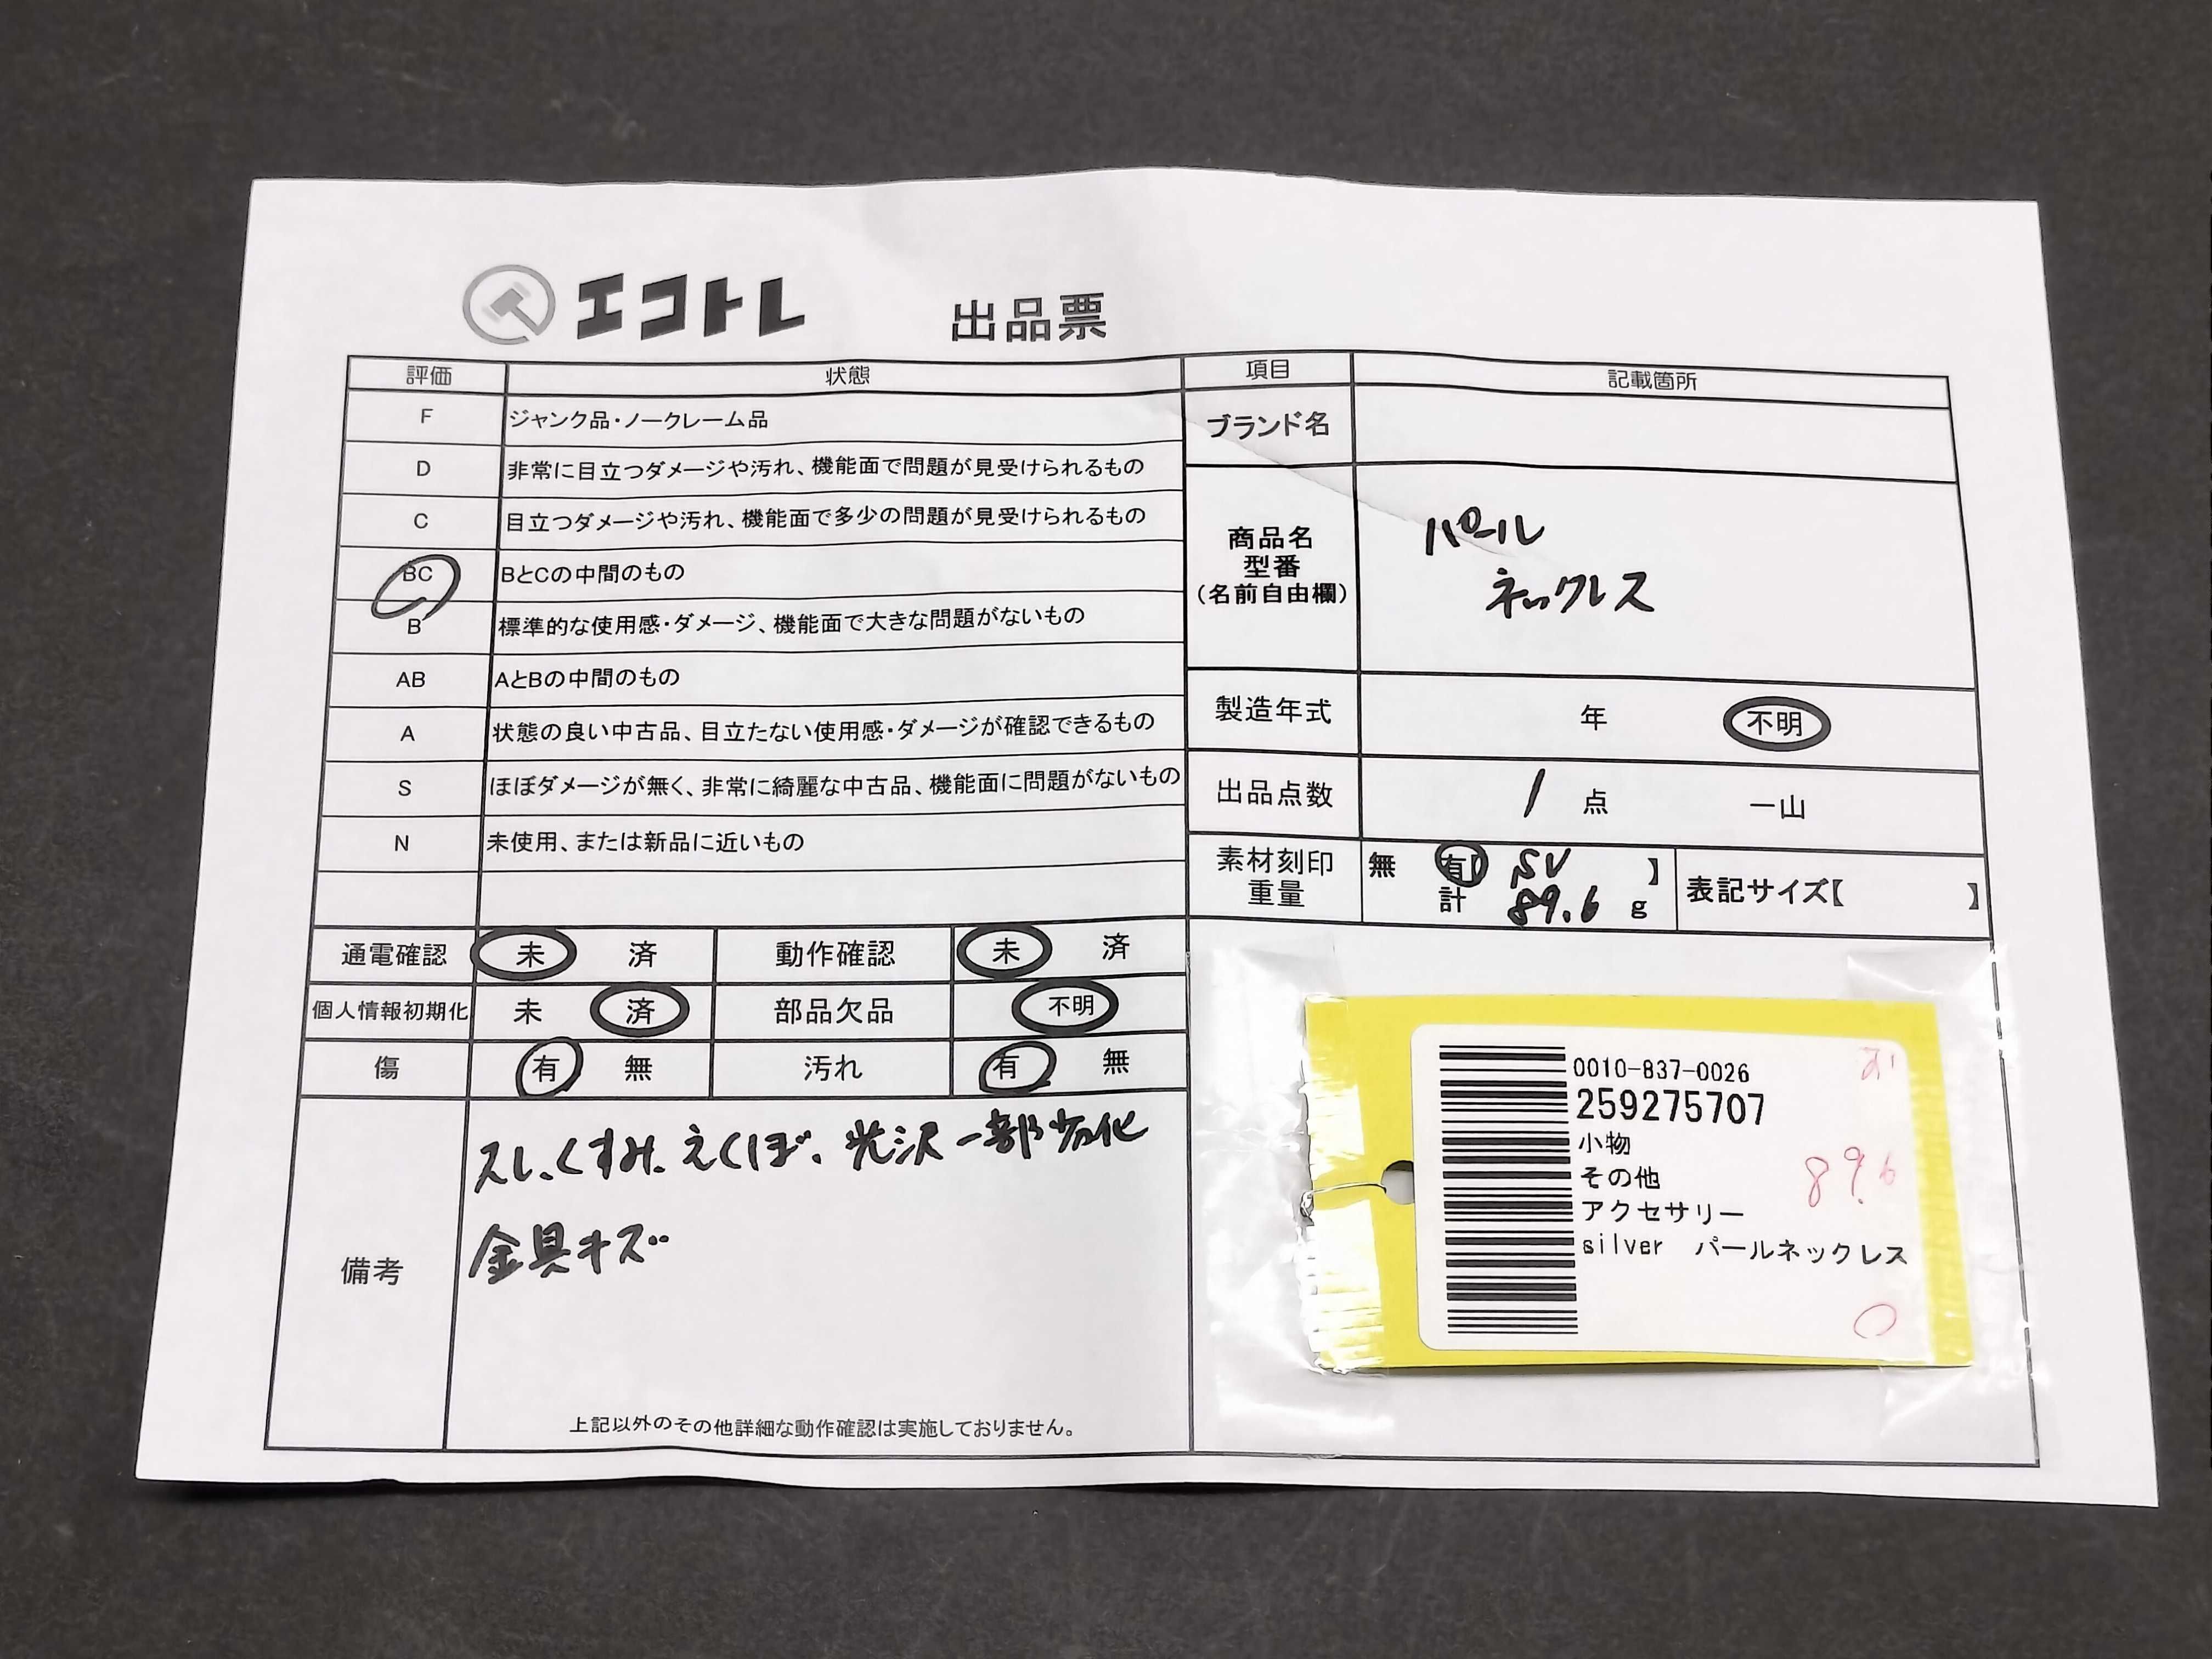 エコトレ 出品票
評価 状態
F ジャンク品・ノークレーム品
D 非常に目立つダメージや汚れ、機能面で問題が見受けられるもの
C 目立つダメージや汚れ、機能面で多少の問題が見受けられるもの
BC BとCの中間のもの
B 標準的な使用感・ダメージ、機能面で大きな問題がないもの
AB AとBの中間のもの
A 状態の良い中古品、目立たない使用感・ダメージが確認できるもの
S ほぼダメージが無く、非常に綺麗な中古品、機能面に問題がないもの
N 未使用、または新品に近いもの
通電確認 未 済 動作確認 未 済
個人情報初期化 未 済 部品欠品 不明
傷 有 無 汚れ 有 無
備考
スレ、くすみ、えくぼ、光沢一部劣化
金具キズ
上記以外のその他詳細な動作確認は実施しておりません。
項目 記載箇所
ブランド名
商品名
型番
(名前自由欄)
パール
ネックレス
製造年式 年 不明
出品点数 1 点 一山
素材刻印
重量
無 有【 SV 】
計 89.6 g
表記サイズ【 】
0010-837-0026
259275707
小物
その他
アクセサリー
silver パールネックレス
89.6